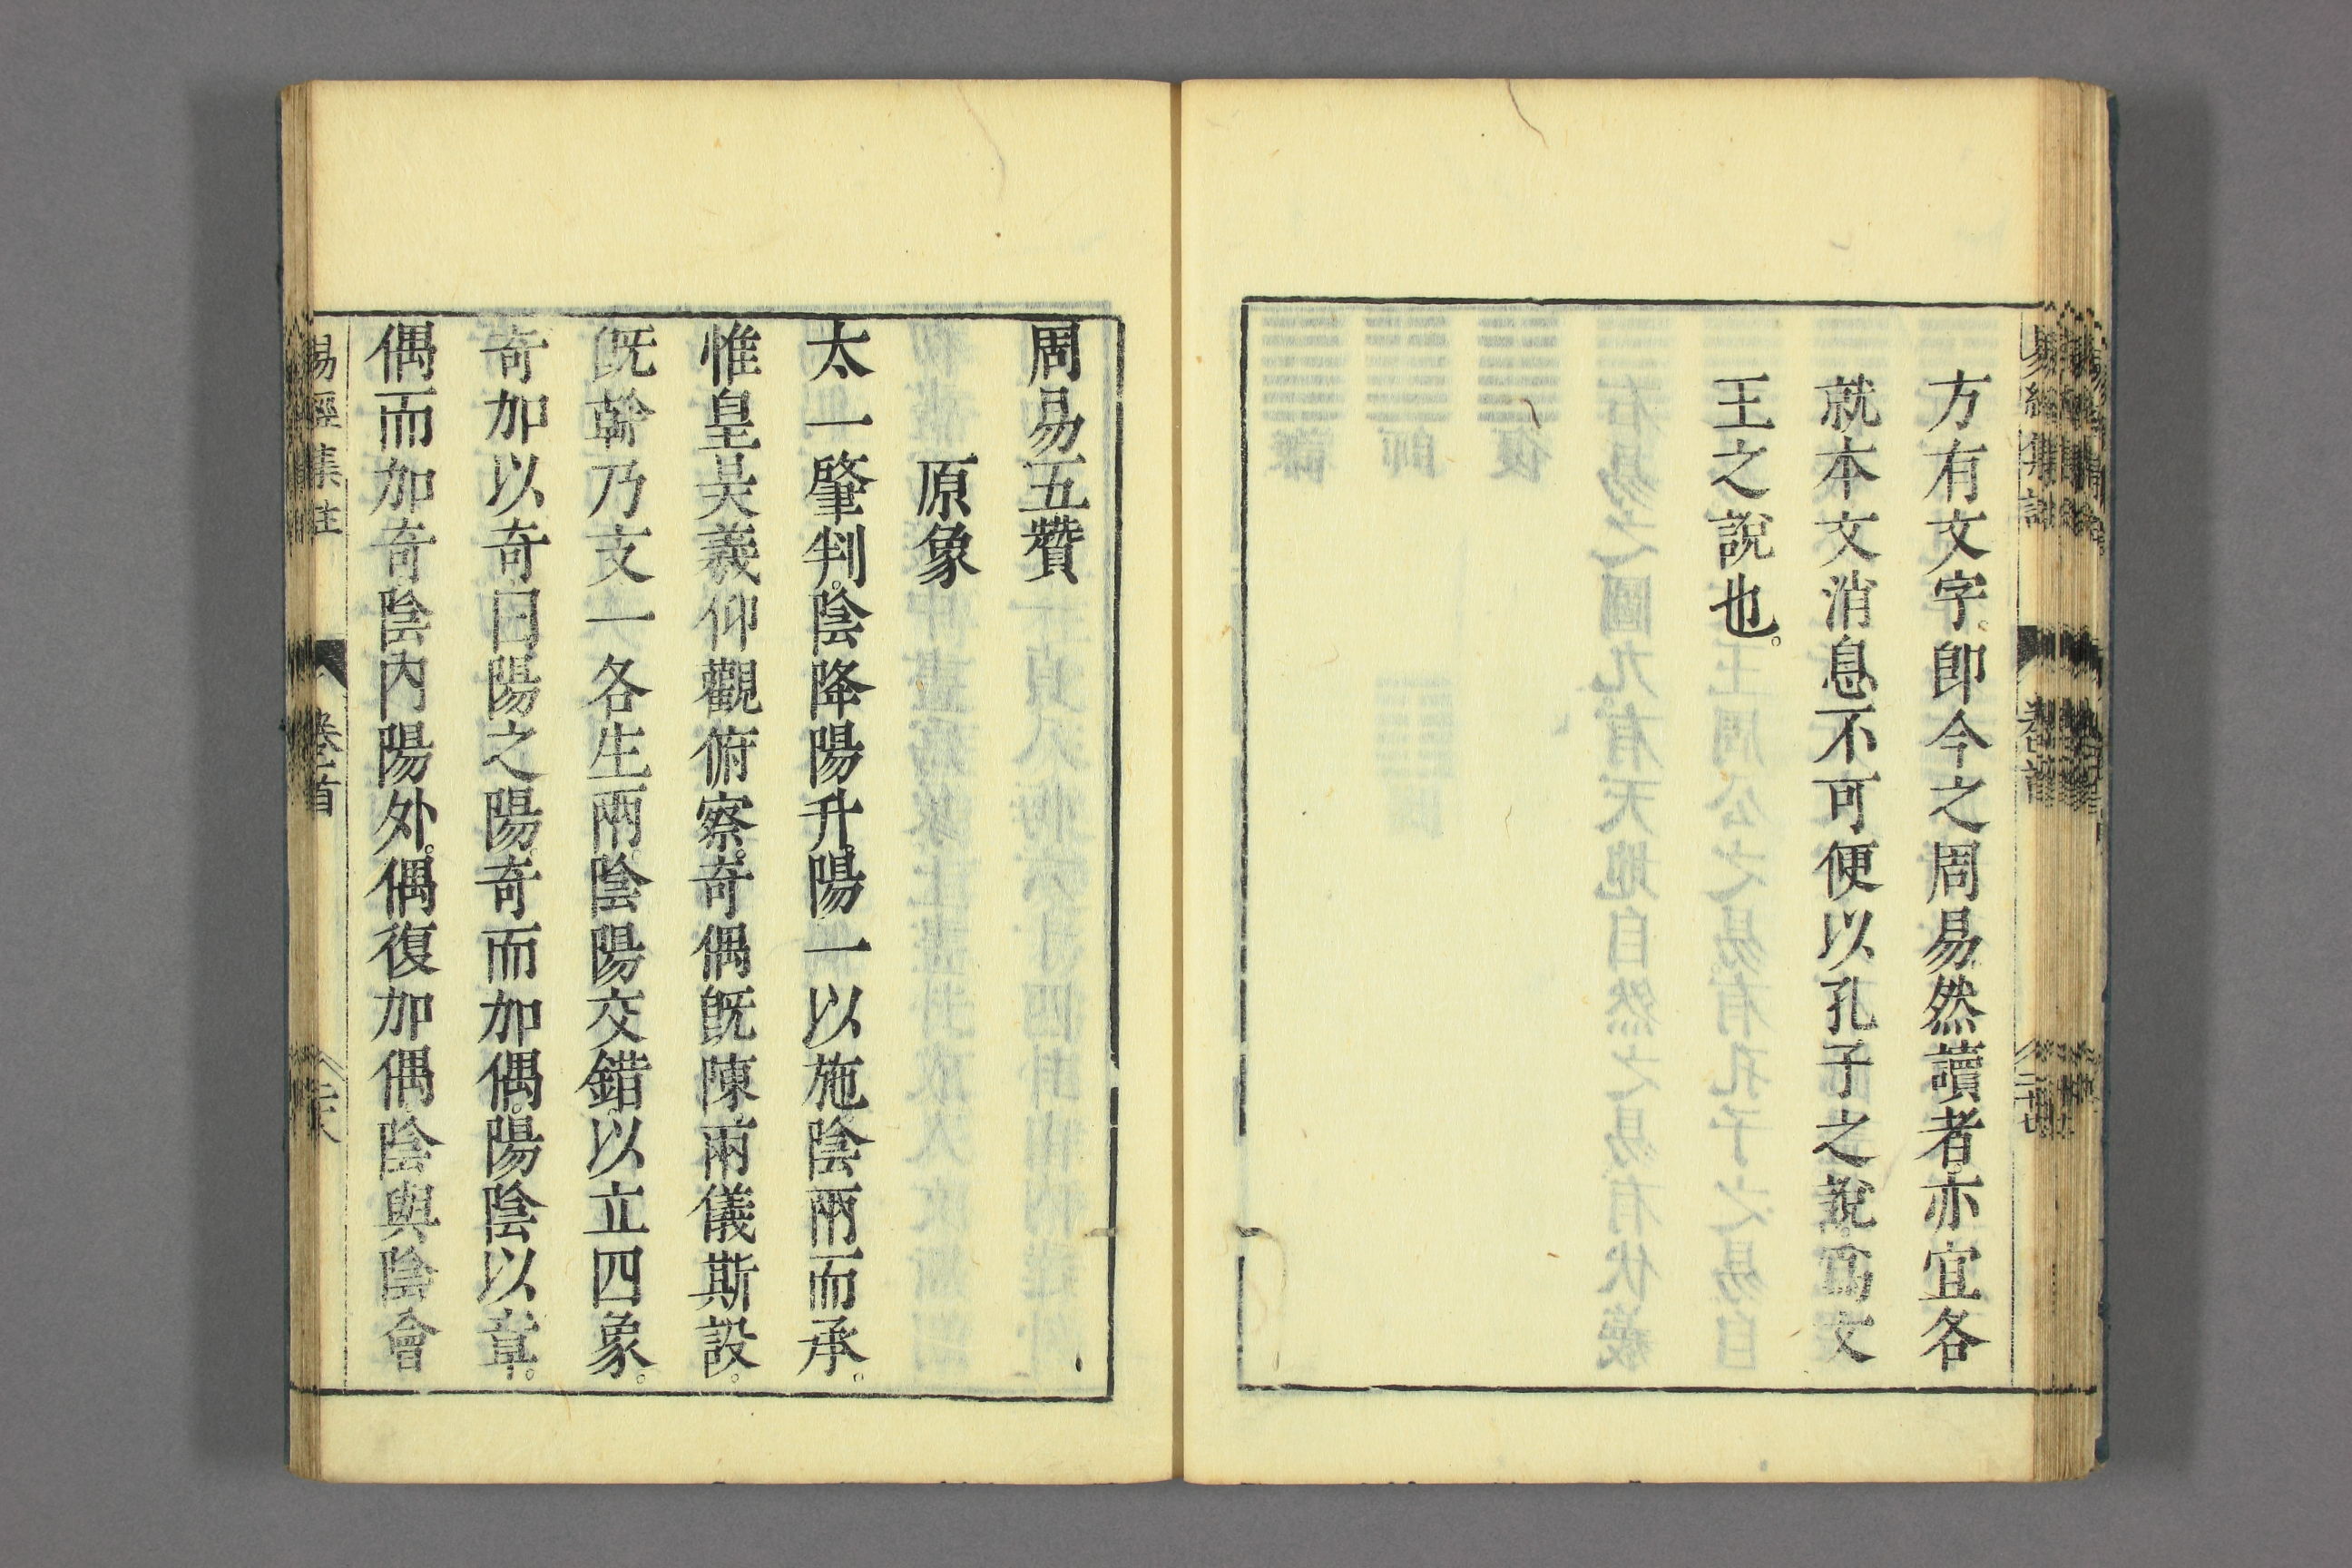 方有文字。即今之周易然讀者亦宜各
就本文消息不可便以孔子之說爲文
王之說也。
周易五贊
原象
太一肇判。陰降陽升。陽一以施陰兩而承。
惟皇昊羲仰觀俯察。奇偶旣陳兩儀斯設。
旣幹乃支一各生兩陰陽交錯以立四象。
奇加以奇曰陽之陽。奇而加偶。陽陰以章。
偶而加奇陰內陽外。偶復加偶陰與陰會
易經集註 卷首